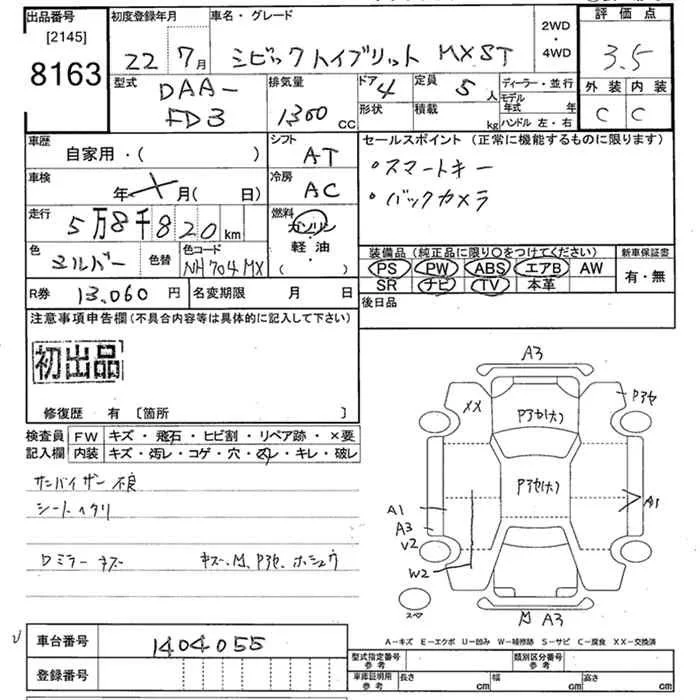 出品番号
[2145]
8163
初度登録年月
22 7月
車名・グレード
シビックハイブリット MXST
2WD
・
4WD
評価点
3.5
外装 内装
C C
型式
DAA-
FD3
排気量
1300 CC
ドア 4
形状
定員 5 人
積載 kg
ディーラー・並行
モデル年式 年
ハンドル 左・右
車歴
自家用・( )
シフト
AT
車検
年 月( 日)
冷房
AC
走行
5万8千820km
燃料
ガソリン
軽・油
・
( )
色
シルバー
色替
色コード
NH704MX
セールスポイント(正常に機能するものに限ります)
・スマートキー
・バックカメラ
装備品(純正品に限り○をつけてください)
PS PW ABS エアB AW
SR ナビ TV 本革
新車保証書
有・無
R券 13,060円
名変期限 月 日
後日品
注意事項申告欄(不具合内容等は具体的に記入して下さい)
初出品
修復歴 有 [箇所 ]
検査員
記入欄
FW キズ・飛石・ヒビ割・リペア跡・×要
内装 キズ・汚レ・コゲ・穴・スレ・キレ・破レ
サンバイザー不良
シートヘタリ
ロミラーキズ キズ、M、Pヨセ、ホシュウ
A3
XX
Pヨセ
Pヨセ(大)
Pヨセ(大)
A1
A1
A3
V2
W2
スペア
M A3
A-キズ E-エクボ U-凹み W-補修跡 S-サビ C-腐食 XX-交換済
車台番号
1404055
登録番号
型式指定番号
参考
類別区分番号
参考
車庫証明用
参考
長さ cm
幅 cm
高さ cm